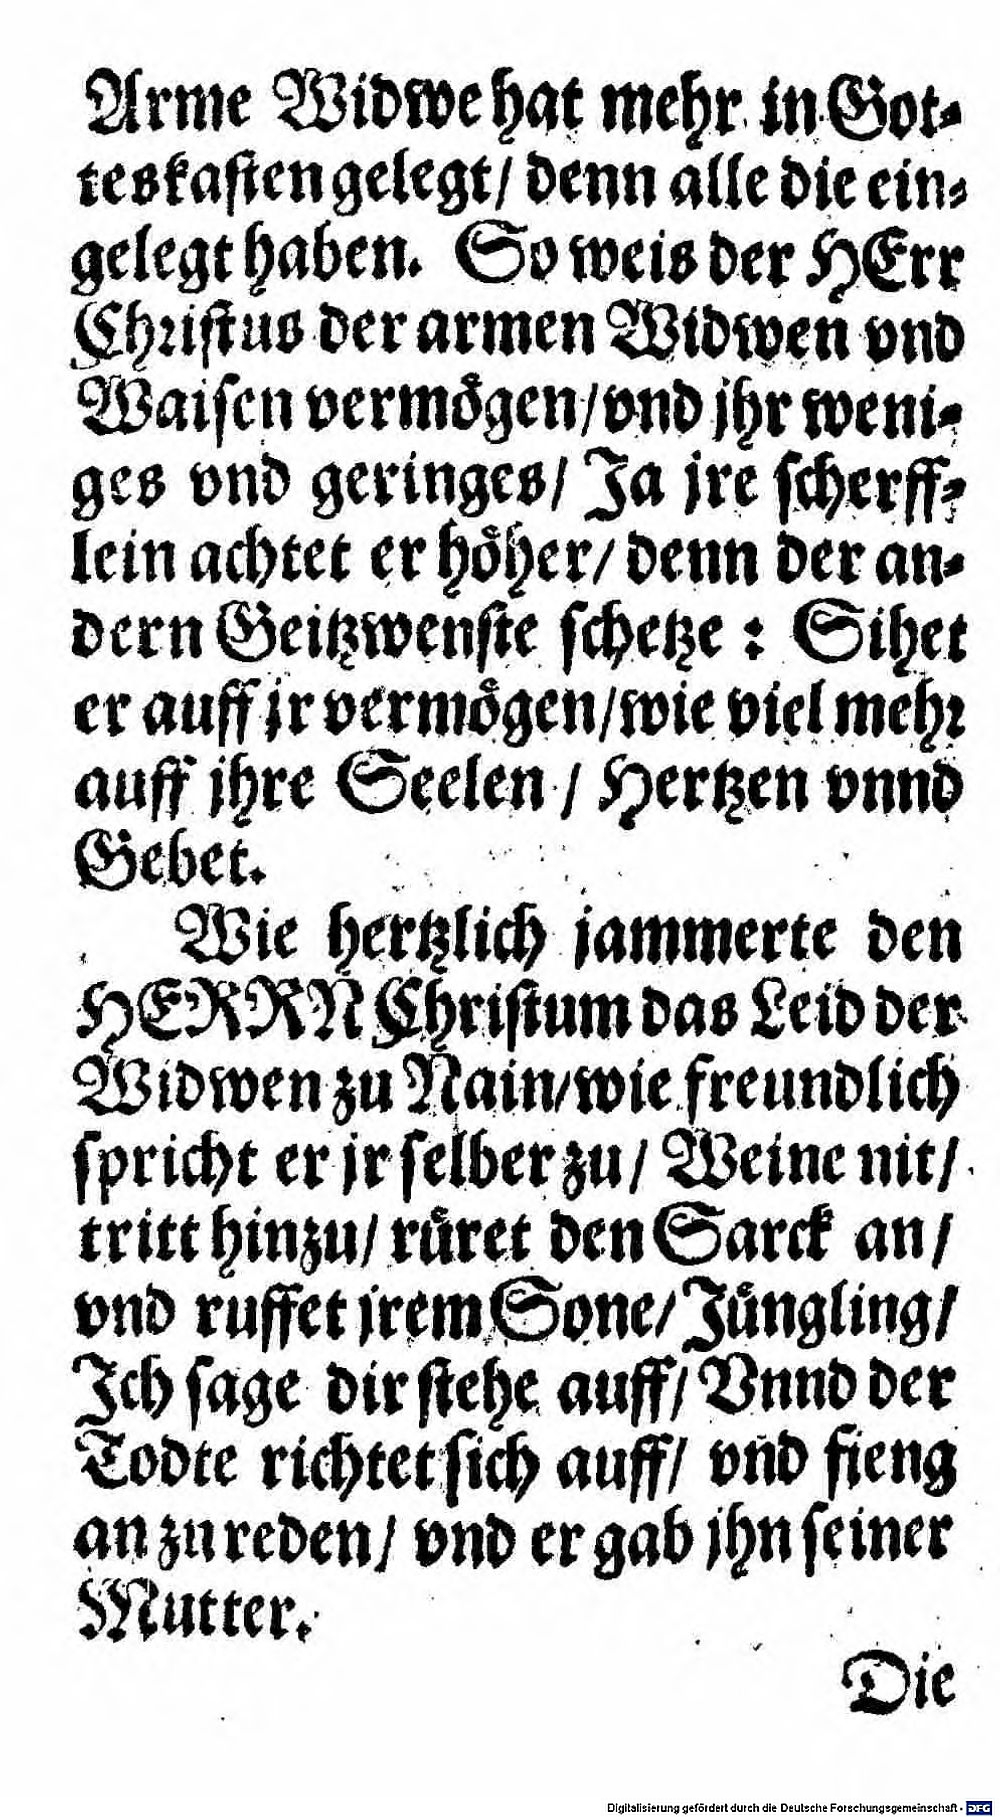 Arme Widwe hat mehr in Got⸗
teskasten gelegt/ denn alle die ein⸗
gelegt haben. So weis der HErr
Christus der armen Widwen vnd
Waisen vermoͤgen/vnd jhr weni⸗
ges vnd geringes/ Ja jre scherff⸗
lein achtet er hoͤher/ denn der an⸗
dern Geitzwenste schetze : Sihet
er auff jr vermoͤgen/wie viel mehr
auff jhre Seelen / Hertzen vnnd
Gebet.
Wie hertzlich jammerte den
HERRN Christum das Leid der
Widwen zu Nain/wie freundlich
spricht er jr selber zu/ Weine nit/
tritt hinzu/ ruͤret den Sarck an/
vnd ruffet jrem Sone/ Juͤngling/
Ich sage dir stehe auff/ Vnnd der
Todte richtet sich auff/ vn̄d fieng
an zu reden/ vnd er gab jhn seiner
Mutter.
Die
Digitalisierung gefördert durch die Deutsche Forschungsgemeinschaft - DFG